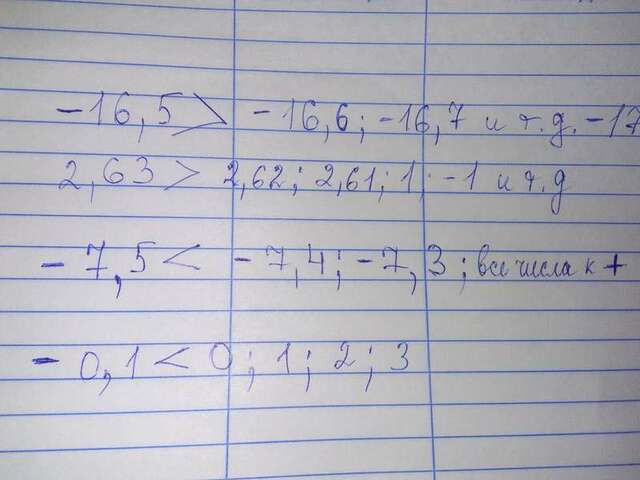 -16,5 > -16,6; -16,7 и т.д. -17
2,63 > 2,62; 2,61; 1; -1 и т.д
-7,5 < -7,4; -7,3; все числа к +
-0,1 < 0; 1; 2; 3